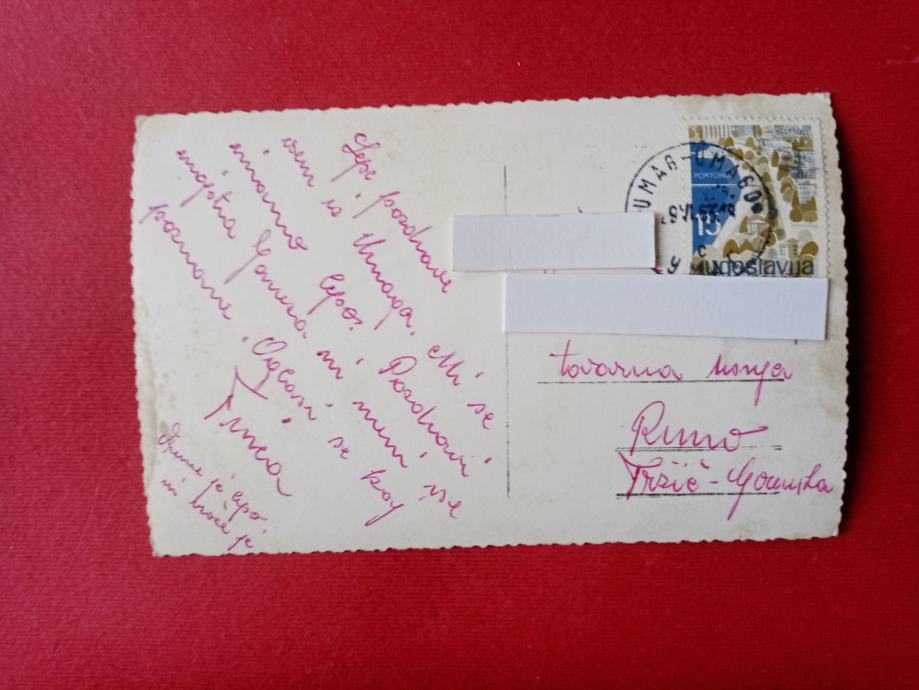 Lepe pozdrave
vsem iz Umaga. Mi se
imamo lepo. Pozdravi
mojstra in meni vse
poznane. Oglasi se kaj
Vreme je lepo
in vroče je
UMAG-UMAGO
PORTOROŽ
15
Jugoslavija
tovarna usnja
Runo
Tržič-Gorenjska